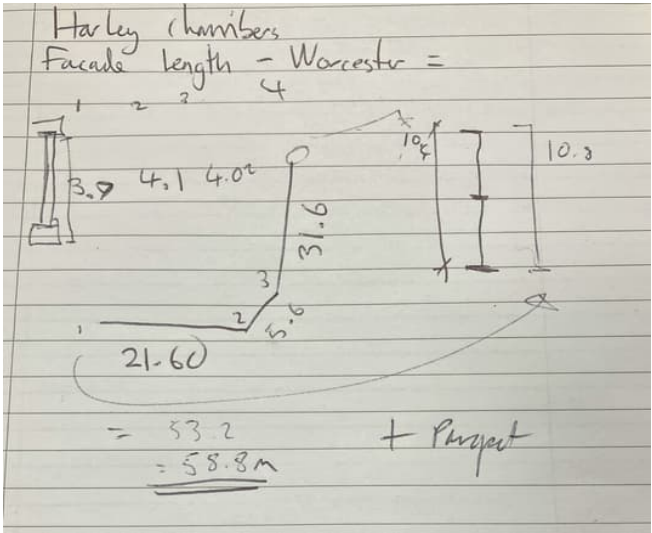 Harley Chambers
Facade length - Worcester =
1 2 3 4
3.9 4.1 4.02
10.8
31.6
3
2
5.6
1
21.60
= 53.2
+ Parapet
= 58.8m